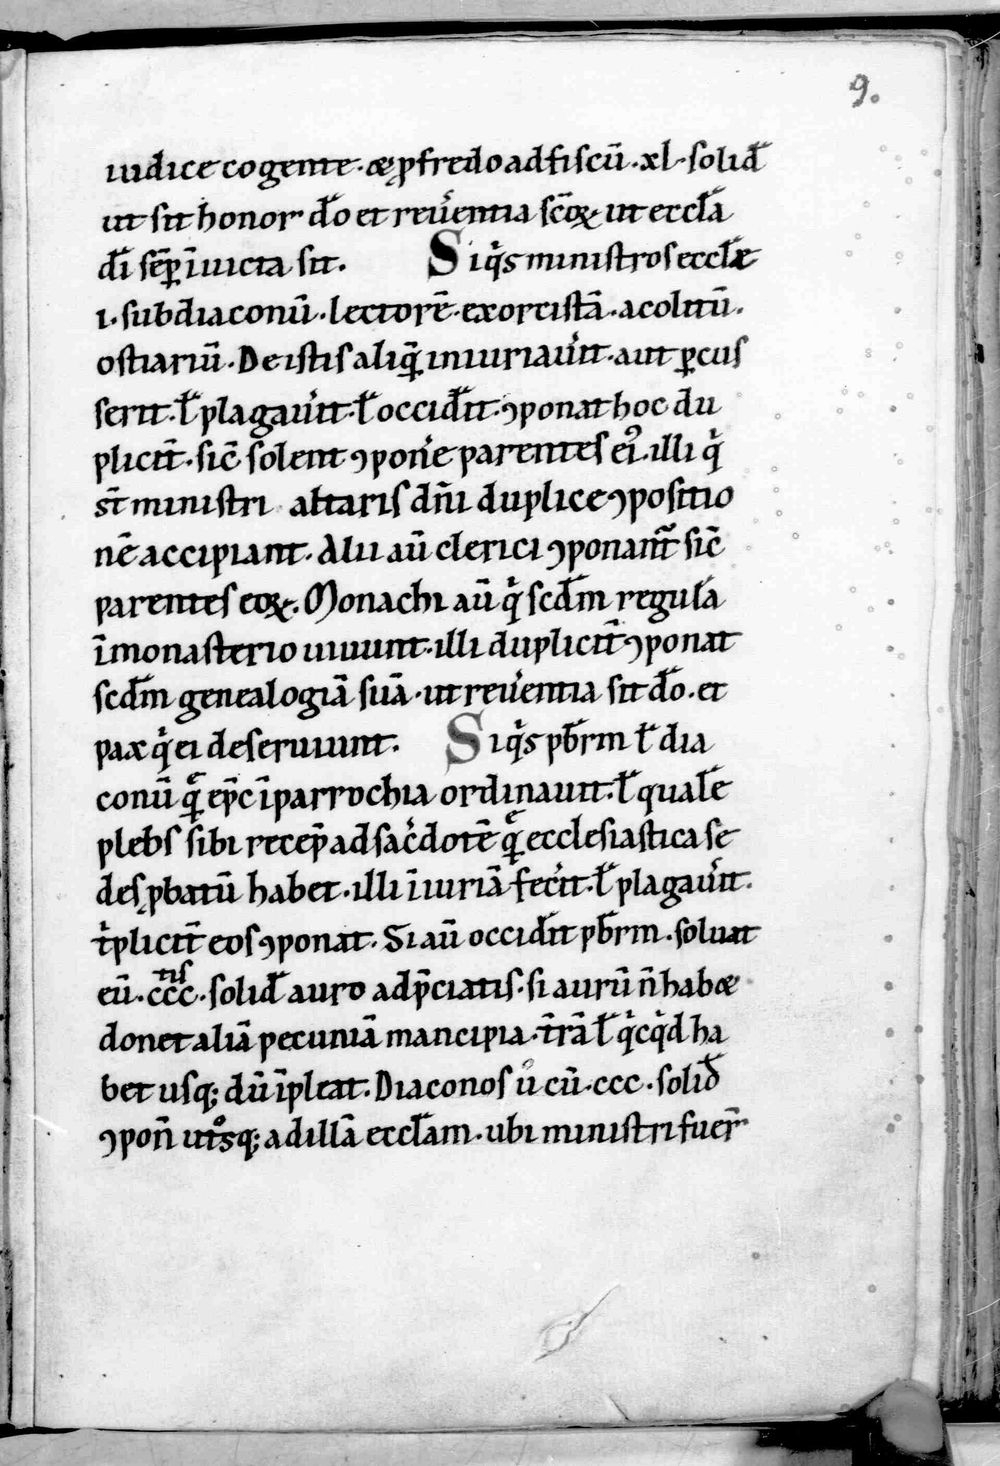 9.
iudice cogente · & ꝓ fredo ad fiscū · xl · solid̄
ut sit honor dō et reuͥentia scōꝝ ut eccl̄a
dī sēꝑ īuicta sit. Siqͥs ministros eccl̄e
i · subdiaconū · lectorē · exorcistā · acolitū ·
ostiariū · De istis aliqꝫ̄ iniuriauͥit · aut ꝑcus
serit · ł plagauͥit · ł occid̄it · ꝯponat hoc du
plicit̄ · sic̄ solent ꝯponͥe parentes eiꝰ · illi qͥ
st̄ ministri altaris dn̄i duplice ꝯpositio
nē accipiant · Alii aū clerici ꝯponant᷑ sic̄
parentes eoꝝ. Monachi aū qͥ scd̄m regulā
ī monasterio uiuunt · illi duplicit̄ ꝯponat
scd̄m genealogiā suā · ut reuͥentia sit dō · et
pax qͥ ei deseruiunt. Siqͥs pb̄rm ł dia
conū quē ep̄c ī parrochia ordinauit · ł qualē
plebs sibi recep̄ ad sac̄dotē quē ecclesiastica se
des ꝓbatū habet · illi īiuriā fecͥit · ł plagauͥit ·
tͥplicit̄ eos ꝯponat · Si aū occid̄it pb̄rm · soluat
eū · ccc^tis · solid̄ auro adp̄ciatis · si aurū n̄ hab&
donet aliā pecuniā mancipia · t̄rā ł qͥcqͥd ha
bet usq; dū īpleat. Diaconos uͦ cū · ccc · solid̄
ꝯpon̄ utͥsq; ad illā eccl̄am · ubi ministri fuer̄